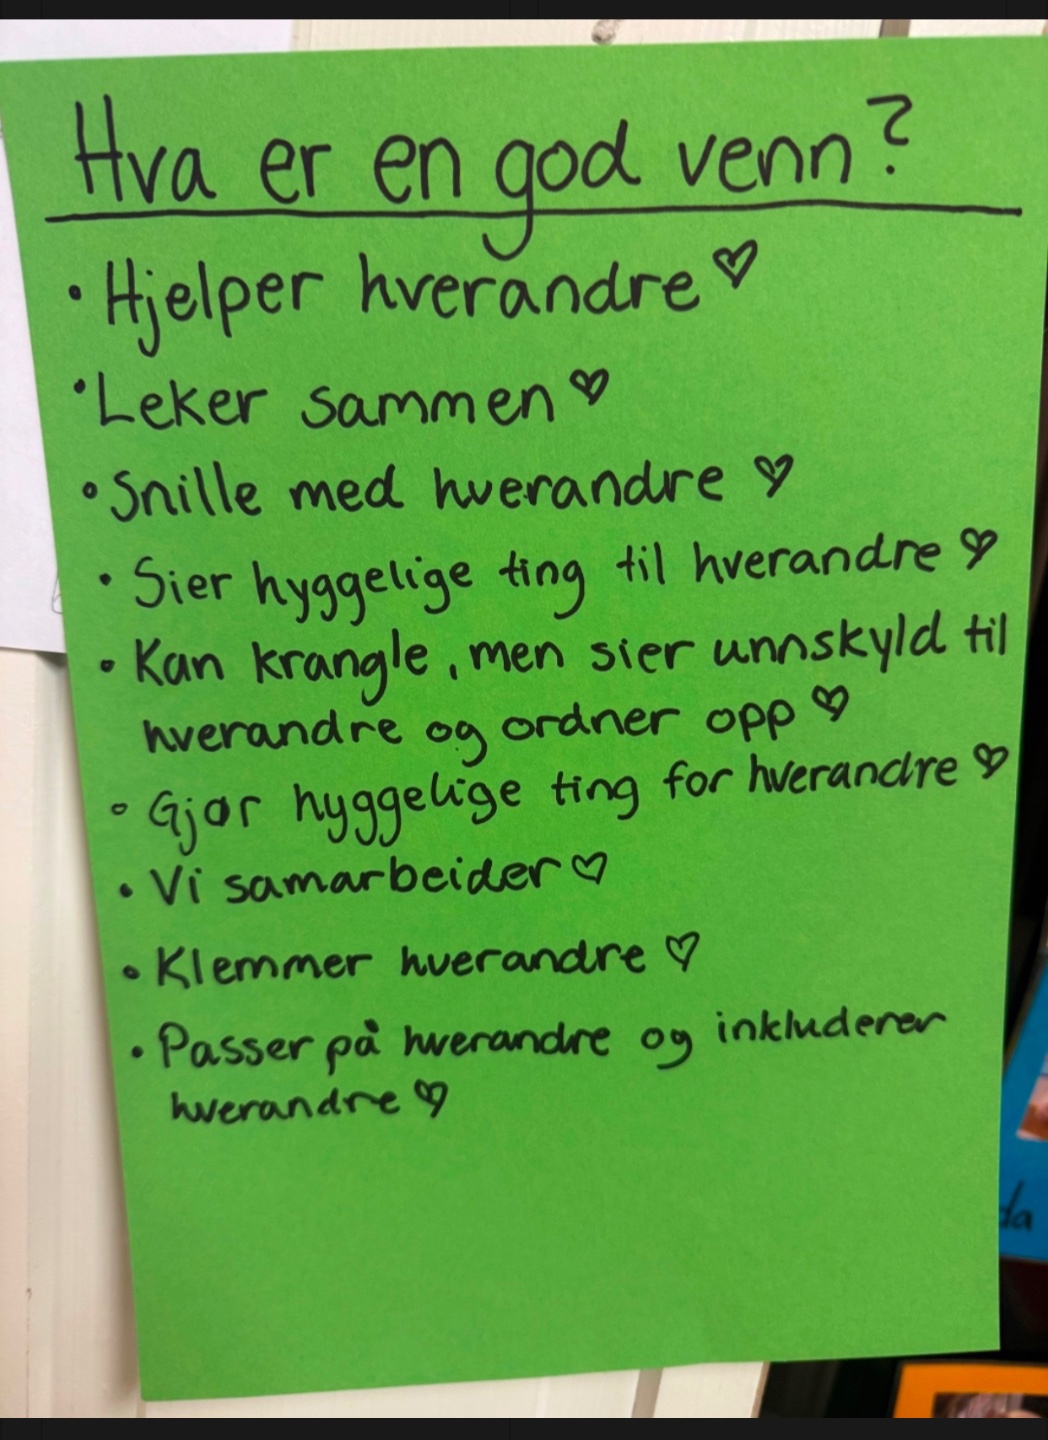 Hva er en god venn?
• Hjelper hverandre ♡
• Leker sammen ♡
• Snille med hverandre ♡
• Sier hyggelige ting til hverandre ♡
• Kan krangle, men sier unnskyld til
hverandre og ordner opp ♡
• Gjør hyggelige ting for hverandre ♡
• Vi samarbeider ♡
• Klemmer hverandre ♡
• Passer på hverandre og inkluderer
hverandre ♡